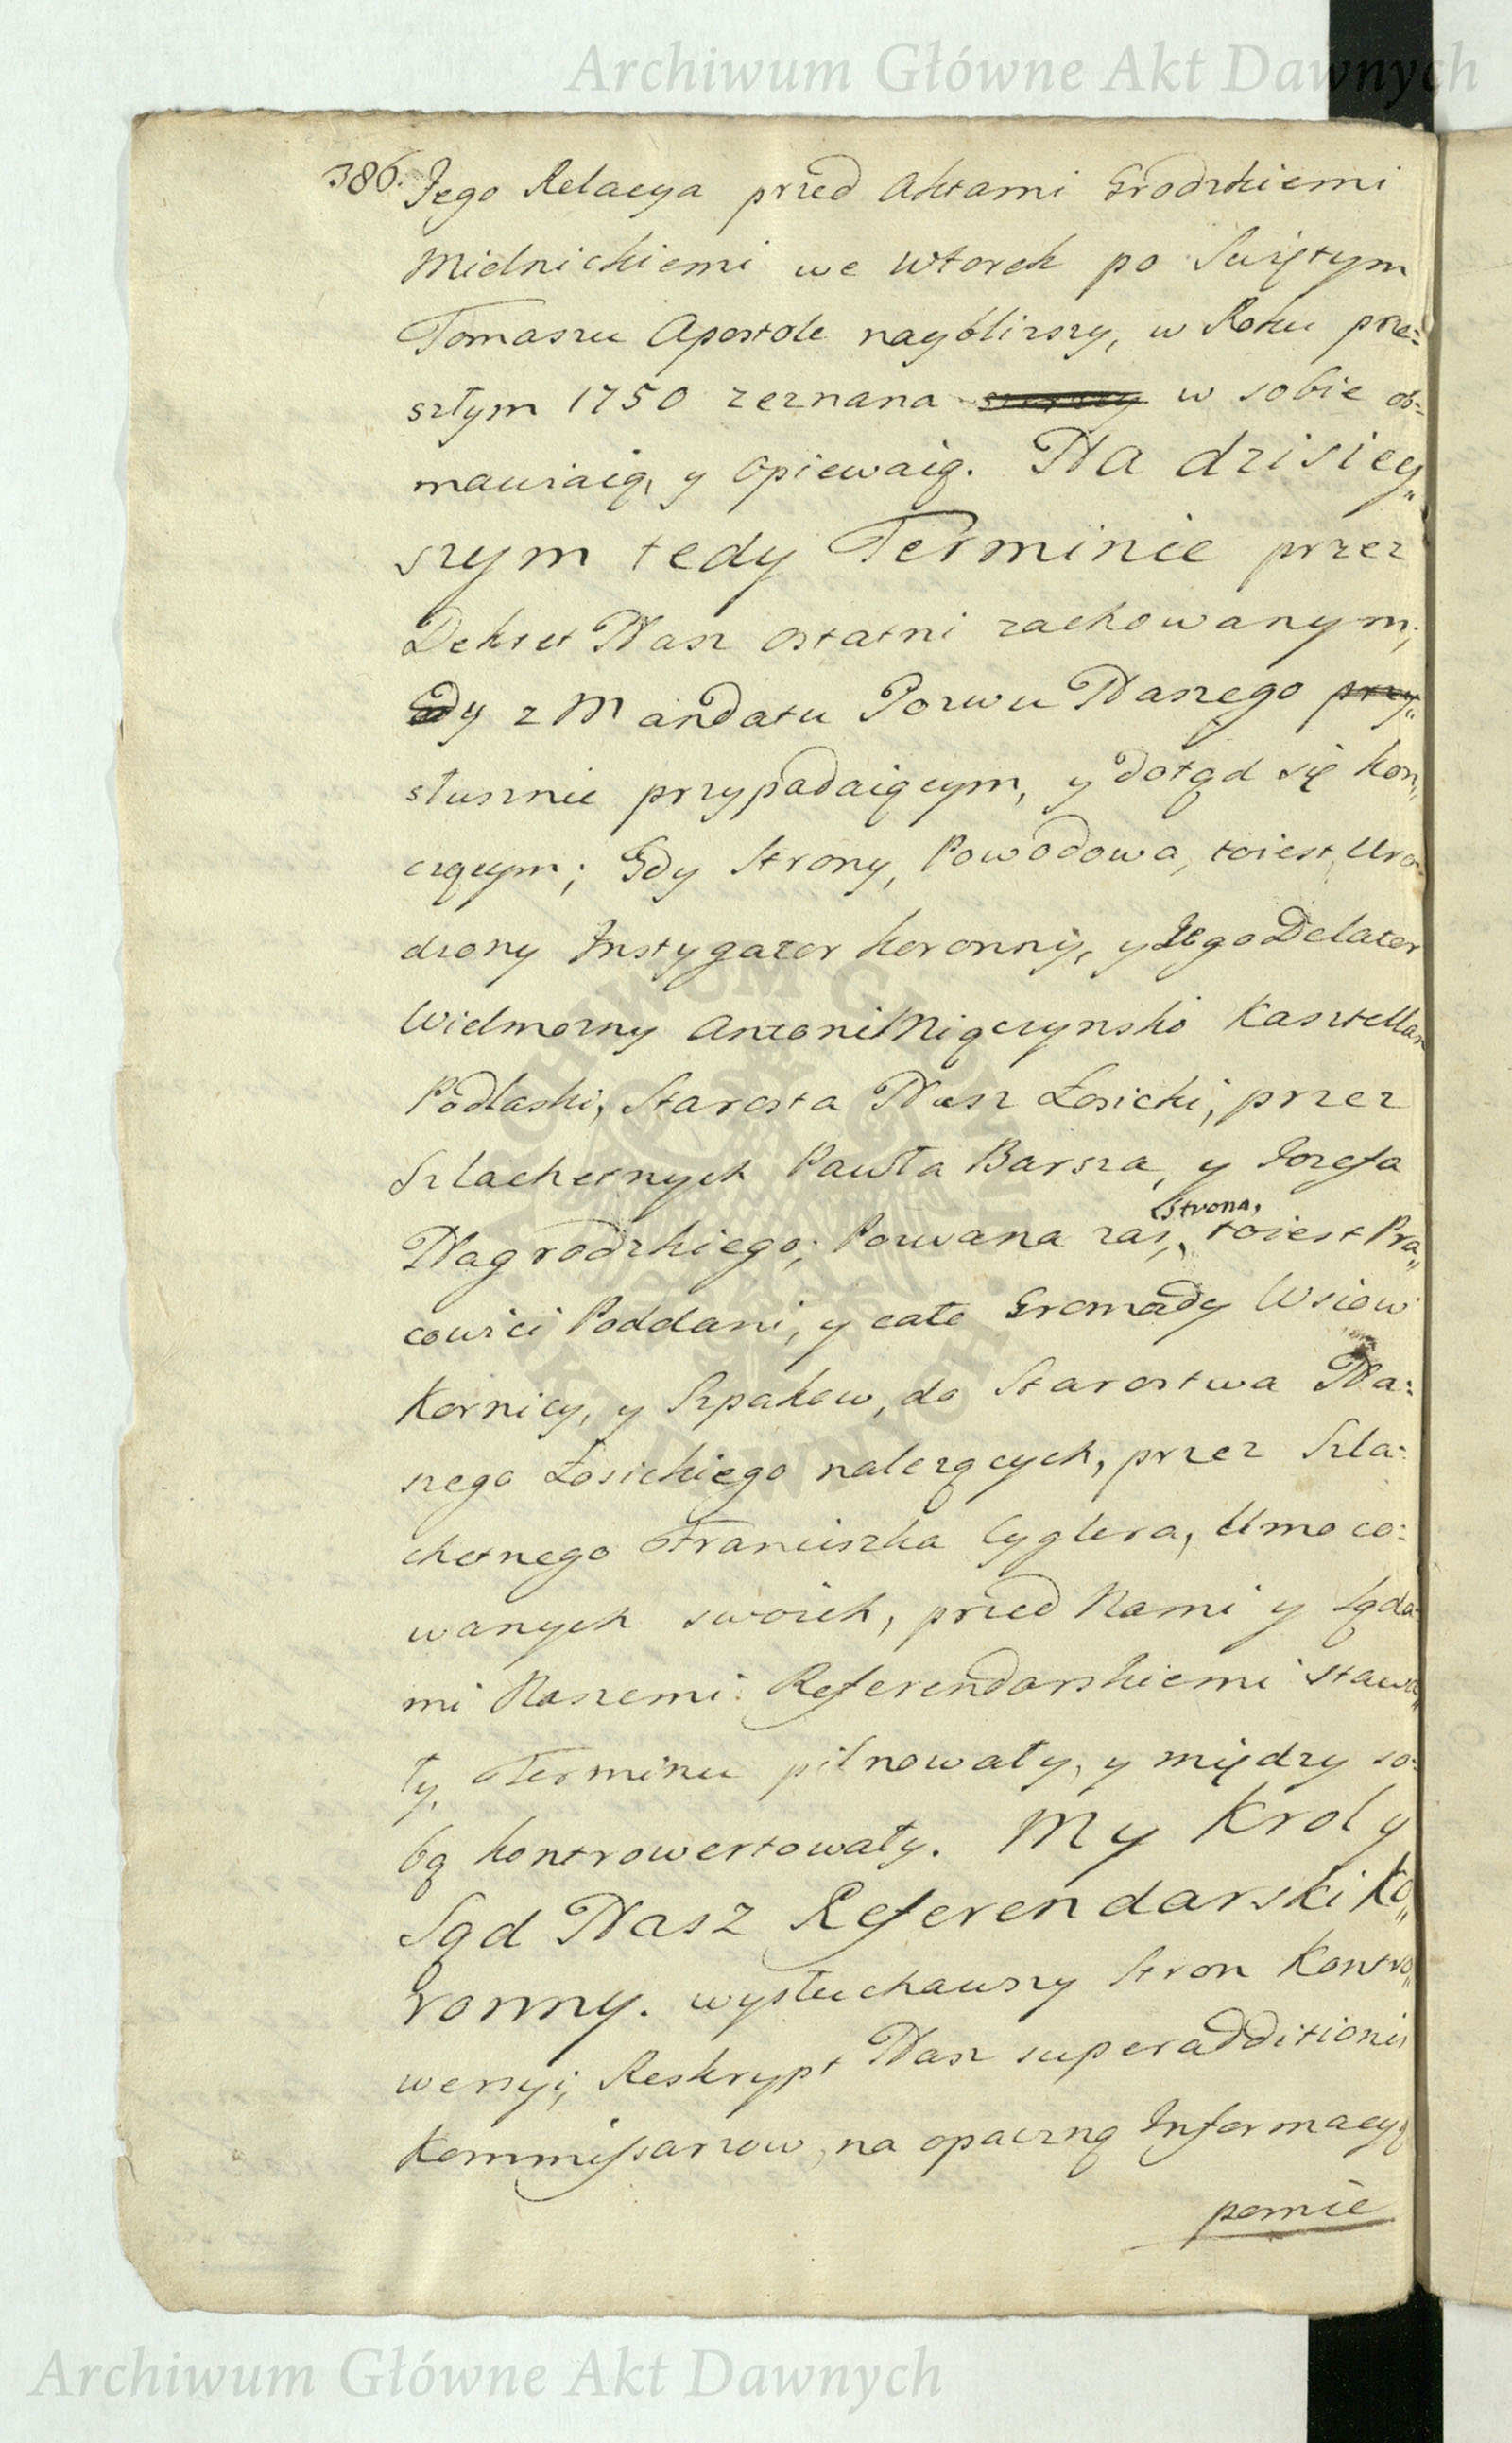 Archiwum Główne Akt Dawnych
386. Jego Relacya przed Aktami Grodzkiemi
Mielnickiemi we wtorek po Swiętym
Tomaszu Apostole nayblizszy, w Roku prze=
szłym 1750 zeznana w sobie ob=
mawiaią, y opiewaią. Na dzisiey„
szym tedy Terminie przez
Dekret Nasz ostatni zachowanym,
Gdy z Mandatu Pozwu Naszego przy„
słusznie przypadaiącym, y dotąd się kon„
czącym; Gdy Strony, Powodowa, toiest Uro
dzony Instygator koronny, y Jego Delator
Wielmozny Antoni Miączynski Kasztellan
Podlaski, Starosta Nasz Łosicki, przez
Szlachetnych Pawła Barsza, y Jozefa
Nagrodzkiego; Pozwana zas, Strona, toiest Pra„
cowici Poddani, y całe Gromady Wsiow
Kornicy, y Szpakow, do Starostwa Na=
szego Łosickiego nalezących, przez Szla=
chetnego Franciszka Cyglera, Umoco=
wanych swoich, przed Nami y Sąda=
mi Naszemi Referendarskiemi stawa„
ły, Terminu pilnowały, y między so=
bą kontrowertowały. My Krol y
Sąd Nasz Referendarski Ko„
ronny. wysłuchawszy Stron Kontro„
wersyi, Reskrypt Nasz superadditionis
Kommissarzow, na opaczną Informacyą
pomie
ARCHIWUM GŁÓWNE AKT DAWNYCH
Archiwum Główne Akt Dawnych